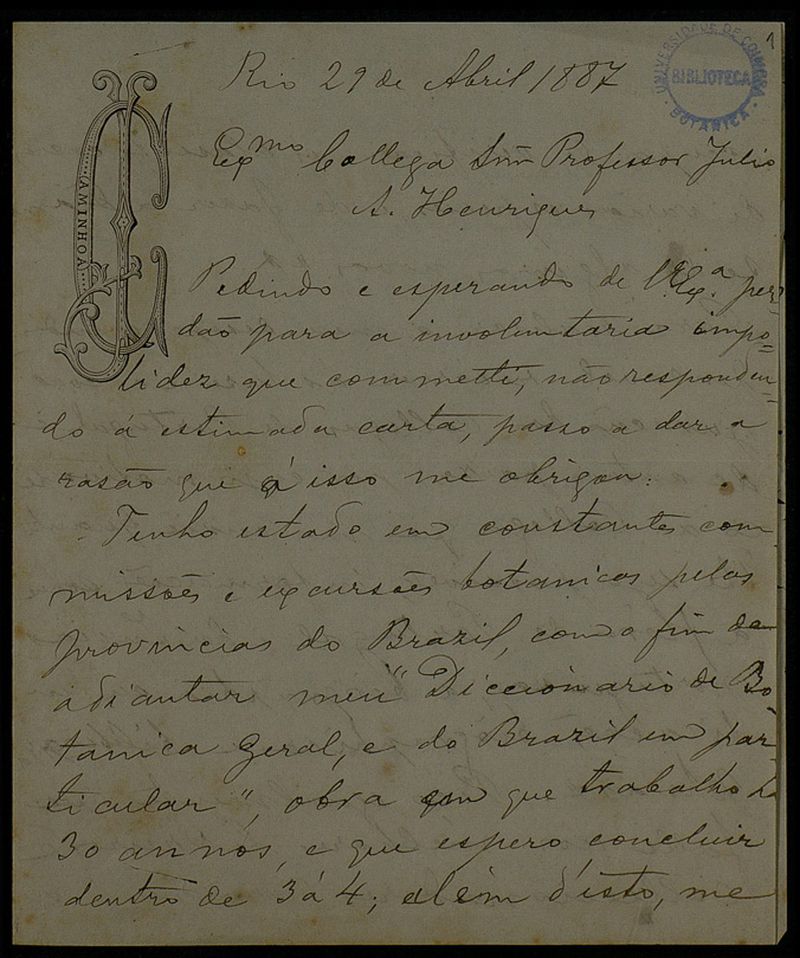 1
UNIVERSIDADE DE COIMBRA
BIBLIOTECA
BOTANICA
CAMINHOÁ
Rio 29 de Abril 1887
Exmo Collega Snr Professor Julio
A. Henriques
Pedindo e esperando de V. Exª. per-
dão para a involuntaria impo=
lidez que commetti, não responden=
do á estimada carta, passo a dar a
rasão que á isso me obrigou:
Tenho estado em constantes com
missões e excursões botanicas pelas
provincias do Brazil, com o fim de
adiantar meu "Diccionario de Bo-
tanica Geral, e do Brazil em par-
ticular", obra em que trabalho há
30 annos, e que espero concluir
dentro de 3 á 4; além d'isto, me